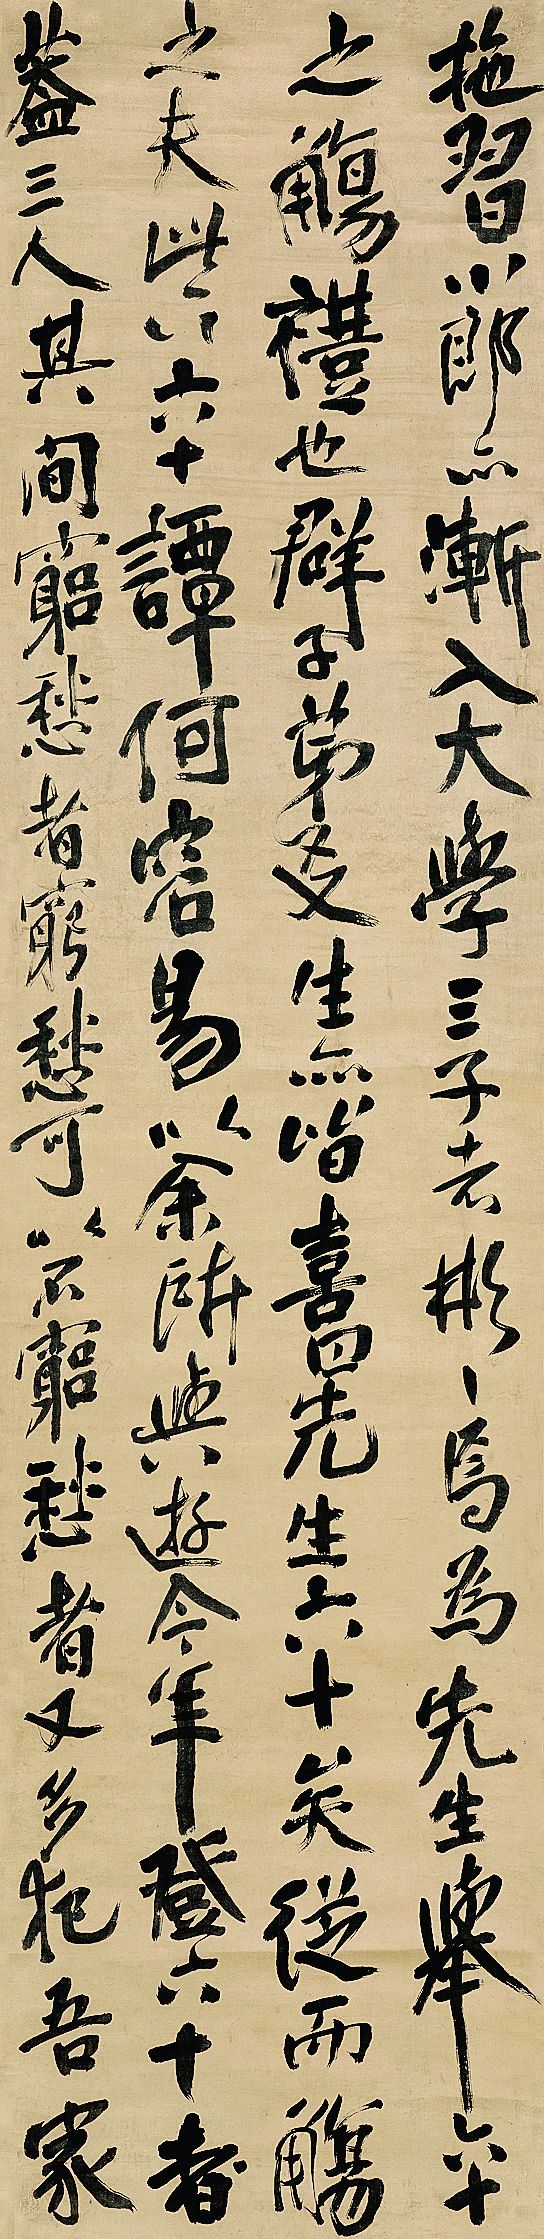 習小郎亦漸入大學三子者彬〻焉為先生舉六十
之觴禮也群子弟友生亦皆喜曰先生六十矣從而觴
之夫此六十譚何容易以余所與遊今年登六十者
蓋三人其間窮愁者窮愁可以不窮愁者又多犯吾家